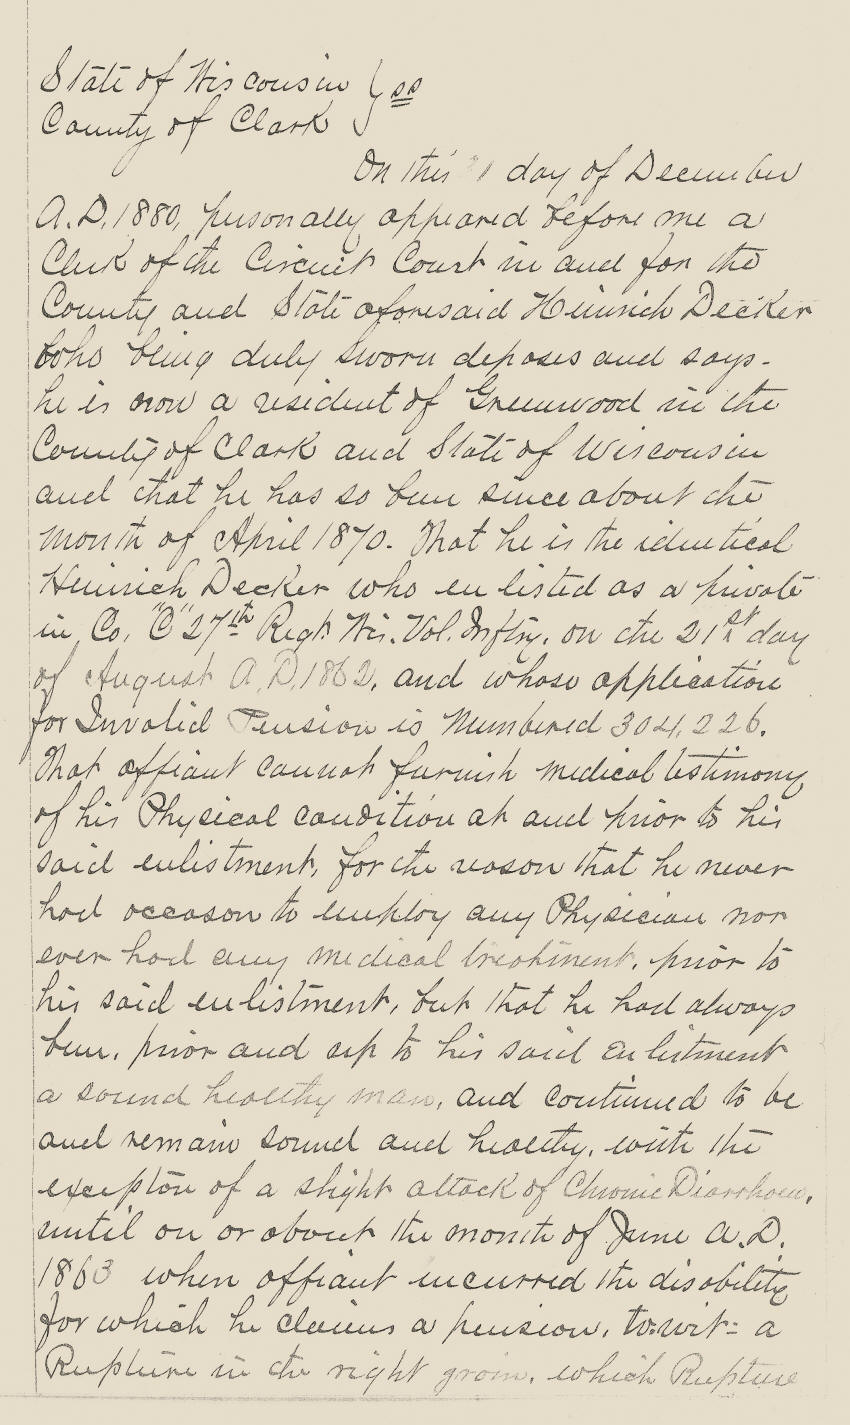 State of Wisconsin } ss
County of Clark
On this day of December
A.D. 1880, personally appeared before me a
Clerk of the Circuit Court in and for the
County and State aforesaid Heinrich Decker
who being duly sworn deposes and says-
he is now a resident of Greenwood in the
County of Clark and State of Wisconsin
and that he has so been since about the
month of April 1870. That he is the identical
Heinrich Decker who enlisted as a private
in Co. "C" 27th Regt. Wis. Vol. Inftry. on the 21st day
of August A.D. 1862, and whose application
for Invalid Pension is Numbered 304,226.
That affiant cannot furnish medical testimony
of his Physical condition at and prior to his
said enlistment, for the reason that he never
had occason to employ any Physician nor
ever had any medical treatment, prior to
his said enlistment, but that he had always
been, prior and up to his said Enlitment
a sound healthy man, and continued to be
and remain sound and healthy, with the
exception of a slight attack of Chronic Diarrhoea,
until on or about the month of June A.D.
1863 when affiant incurred the disability
for which he claims a pension, to-wit: a
Rupture in the right groin, which Rupture